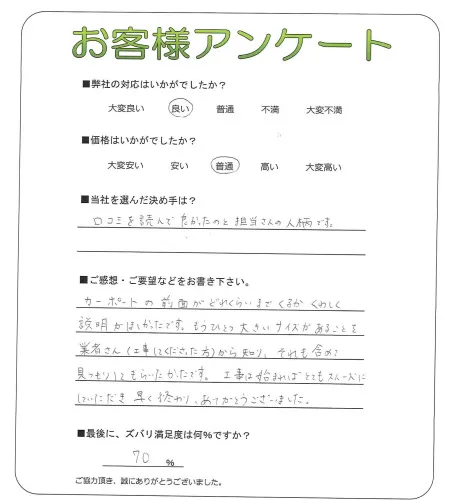 お客様アンケート
■弊社の対応はいかがでしたか？
大変良い 良い 普通 不満 大変不満
■価格はいかがでしたか？
大変安い 安い 普通 高い 大変高い
■当社を選んだ決め手は？
口コミを読んで良かったのと担当さんの人柄です。
■ご感想・ご要望などをお書き下さい。
カーポートの前面がどれくらいまでくるか くわしく
説明がほしかったです。もうひとつ大きいサイズがあることを
業者さん（工事してくださった方）から知り、それも含めて
見つもりしてもらいたかったです。工事は始まればとてもスムーズに
していただき 早く終わり、ありがとうございました。
■最後に、ズバリ満足度は何%ですか？
70 %
ご協力頂き、誠にありがとうございました。